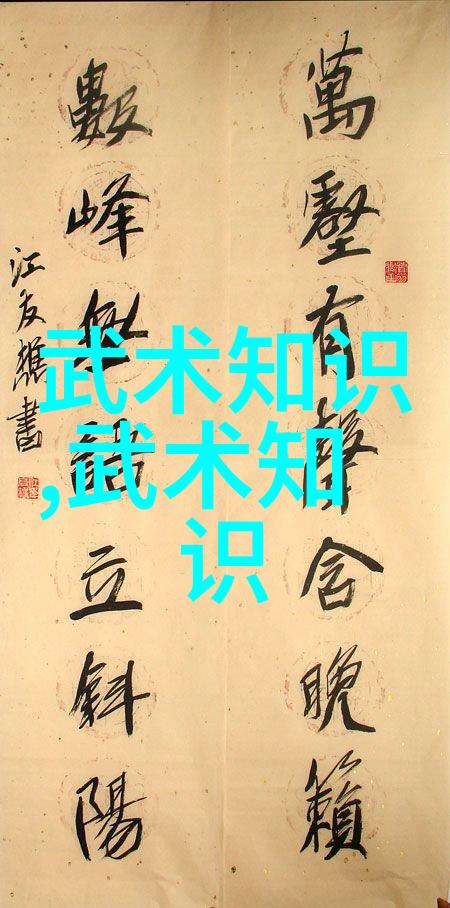 萬壑有聲含晚籟
數峰無語立斜陽
江友樵書
武术知识
,武术知
识